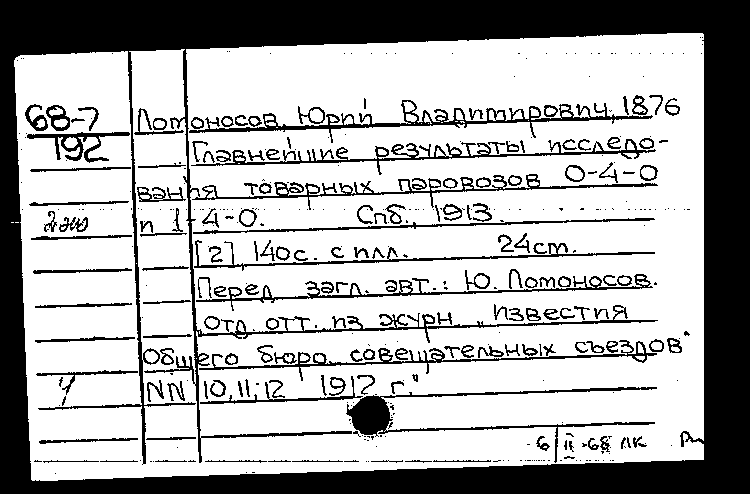 68-7
192
Ломоносов, Юрий Владимирович, 1876
Главнейшие результаты исследо-
вания товарных паровозов 0-4-0
2 экз
и 1-4-0. Спб., 1913.
[2], 140с. с илл. 24cm.
Перед загл. авт.: Ю. Ломоносов.
"Отд. отт. из журн. "Известия
Общего бюро совещательных съездов"
NN 10, 11, 12 1912 г."
6/II-68 ПК